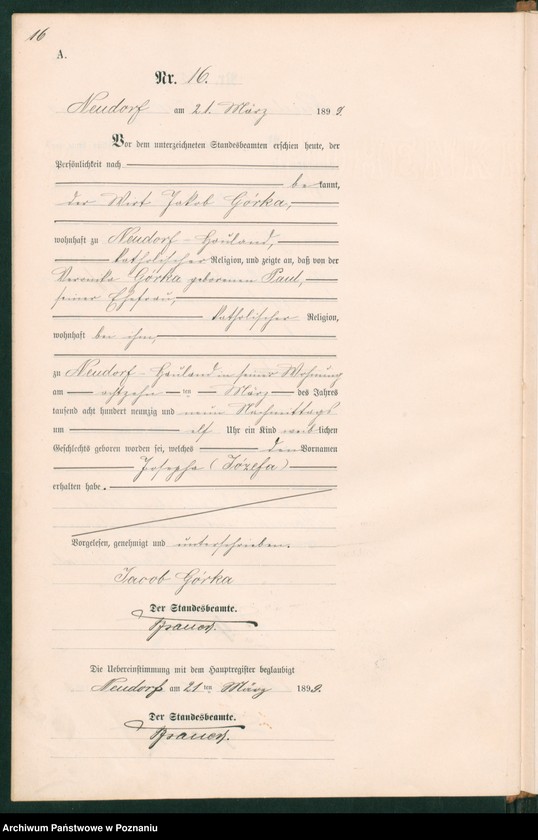 16
A.
Nr. 16.
Neudorf am 21. März 1899.
Vor dem unterzeichneten Standesbeamten erschien heute, der
Persönlichkeit nach
bekannt,
der Wirt Jakob Górka,
wohnhaft zu Neudorf-Hauland,
katholischer Religion, und zeigte an, daß von der
Veronika Górka geborenen Paul,
seiner Ehefrau,
katholischer Religion,
wohnhaft bei ihm,
zu Neudorf-Hauland in seiner Wohnung
am achtzehnten März des Jahres
tausend acht hundert neunzig und neun Nachmittags
um elf Uhr ein Kind weiblichen
Geschlechts geboren worden sei, welches den Vornamen
Josepha (Józefa)
erhalten habe.
Vorgelesen, genehmigt und unterschrieben.
Jacob Górka
Der Standesbeamte.
Die Uebereinstimmung mit dem Hauptregister beglaubigt
Neudorf am 21ten März 1899.
Der Standesbeamte.
Archiwum Państwowe w Poznaniu